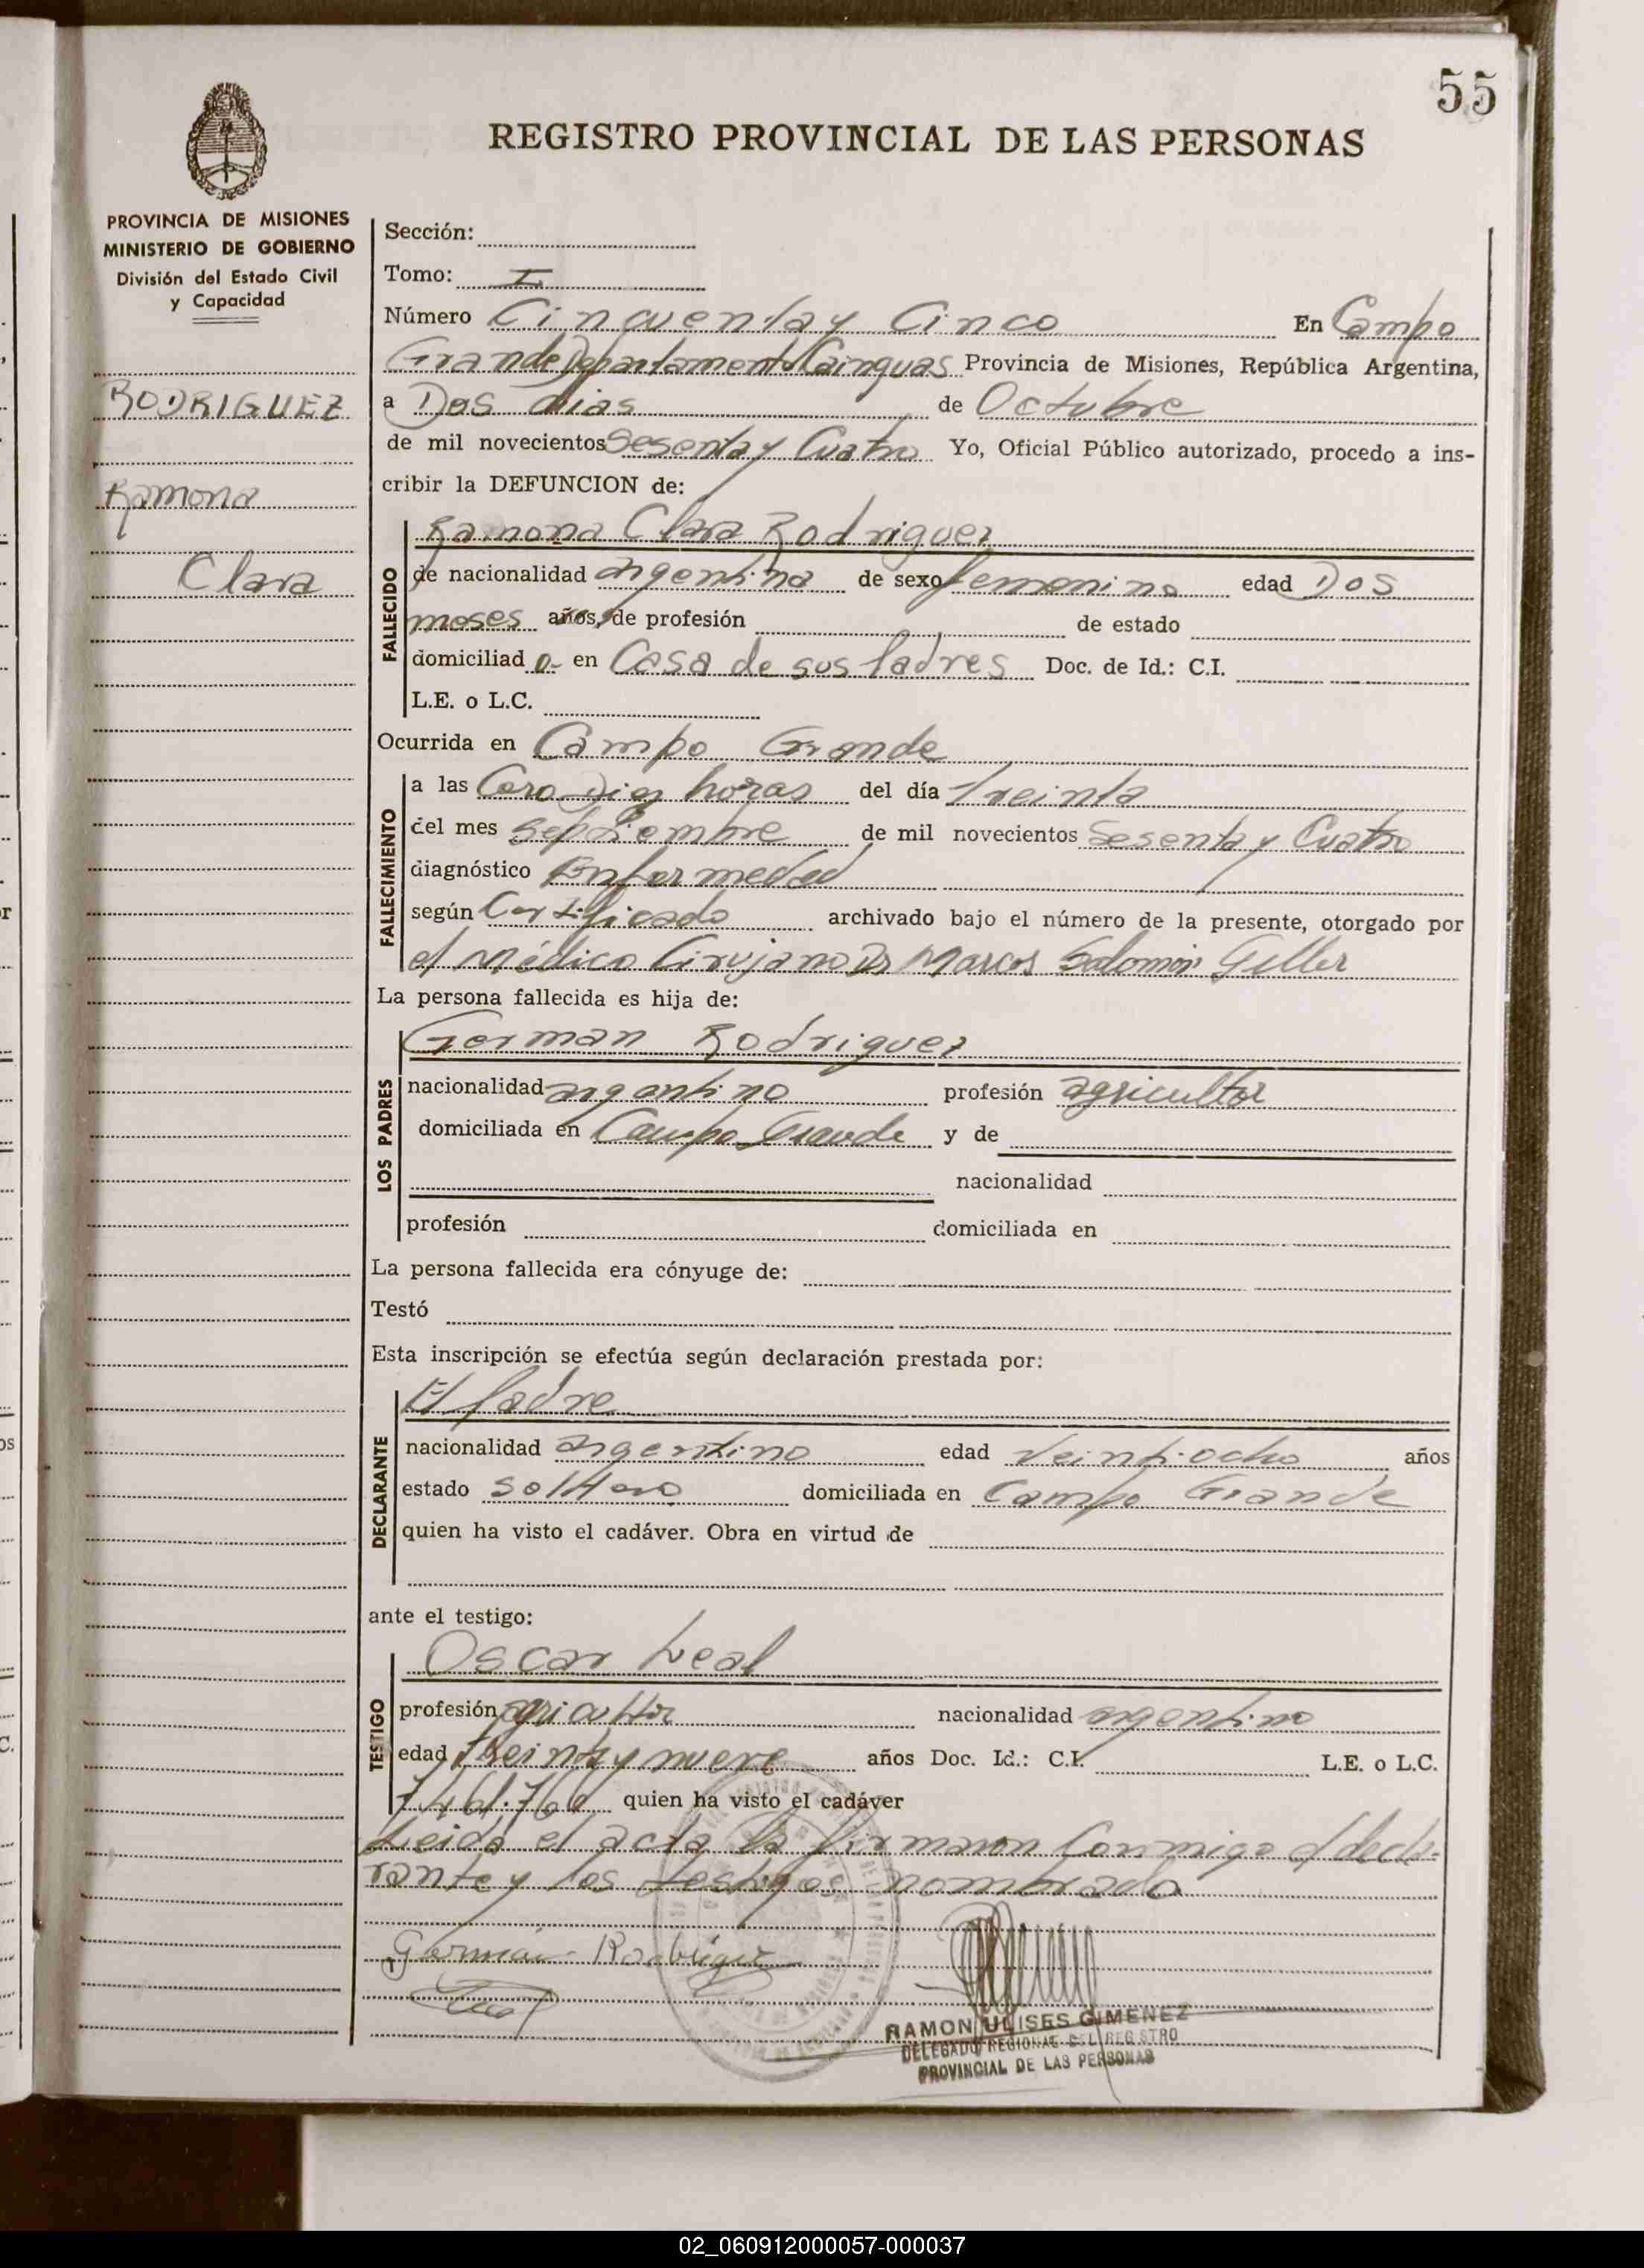 55
REGISTRO PROVINCIAL DE LAS PERSONAS
PROVINCIA DE MISIONES
MINISTERIO DE GOBIERNO
División del Estado Civil
y Capacidad
RODRIGUEZ
Ramona
Clara
Sección:
Tomo: I
Número Cincuenta y Cinco En Campo
Grande Departamento Cainguas Provincia de Misiones, República Argentina,
a Dos dias de Octubre
de mil novecientos Sesenta y Cuatro Yo, Oficial Público autorizado, procedo a ins-
cribir la DEFUNCION de:
FALLECIDO
Ramona Clara Rodriguez
de nacionalidad argentina de sexo femenino edad Dos
meses años, de profesión de estado
domiciliad a en Casa de sus Padres Doc. de Id.: C.I.
L.E. o L.C.
Ocurrida en Campo Grande
FALLECIMIENTO
a las Cero Diez horas del día treinta
del mes Septiembre de mil novecientos Sesenta y Cuatro
diagnóstico Enfermedad
según Certificado archivado bajo el número de la presente, otorgado por
el Médico Cirujano Dr Marcos Salomon Geller
La persona fallecida es hija de:
LOS PADRES
German Rodriguez
nacionalidad argentino profesión agricultor
domiciliada en Campo Grande y de
nacionalidad
profesión domiciliada en
La persona fallecida era cónyuge de:
Testó
Esta inscripción se efectúa según declaración prestada por:
DECLARANTE
El Padre
nacionalidad argentino edad veintiocho años
estado soltero domiciliada en Campo Grande
quien ha visto el cadáver. Obra en virtud de
ante el testigo:
TESTIGO
Oscar Leal
profesión agricultor nacionalidad argentino
edad treinta y nueve años Doc. Id.: C.I. L.E. o L.C.
quien ha visto el cadáver
Leida el acta la firmaron Conmigo el decla-
rante y los testigos nombrado
Germán Rodriguez
Leal
RAMON ULISES GIMENEZ
DELEGADO REGIONAL DEL REGISTRO
PROVINCIAL DE LAS PERSONAS
02_060912000057-000037